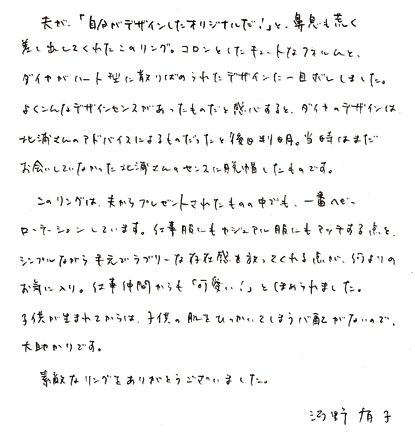 夫が、「自分がデザインしたオリジナルだ！」と、鼻息も荒く
差し出してくれたこのリング。コロンとしたキュートなフォルムと、
ダイヤがハート型に散りばめられたデザインに一目ぼれしました。
よくこんなデザインセンスがあったものだと感心すると、ダイヤのデザインは
北浦さんのアドバイスによるものだったと後日判明。当時はまだ
お会いしていなかった北浦さんのセンスに脱帽したものです。
このリングは、夫からプレゼントされたものの中でも、一番ヘビー
ローテーションしています。仕事服にもカジュアル服にもマッチする点と、
シンプルながら手元でラブリーな存在感を放ってくれる点が、何よりの
お気に入り。仕事仲間からも「可愛い！」とほめられました。
子供が生まれてからは、子供の肌をひっかいてしまう心配がないので、
大助かりです。
素敵なリングをありがとうございました。
河野 有子